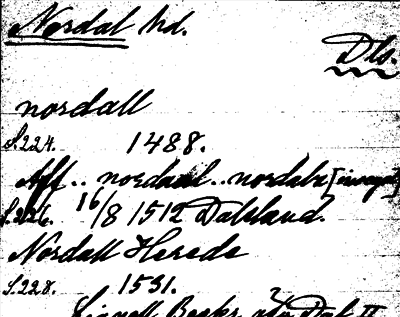 Nordal hd.
Dls.
nordall
S.224. 1488.
Aff .. nordaal .. nordala
S.226. 16/8 1512 Dalsland.
Nordall Herede
S.228. 1531.
Lignell Beskr. Dal II